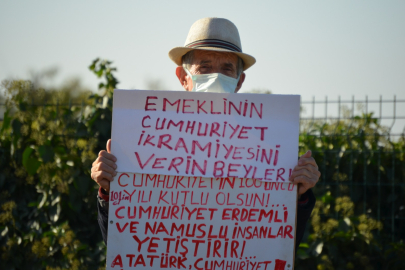 EMEKLİNİN
CUMHURİYET
İKRAMİYESİNİ
VERİN BEYLER!
CUMHURİYET'İN 100ÜNCÜ
YILI KUTLU OLSUN!...
CUMHURİYET ERDEMLİ
VE NAMUSLU İNSANLAR
YETİŞTİRİR!
ATATÜRK, CUMHURİYET